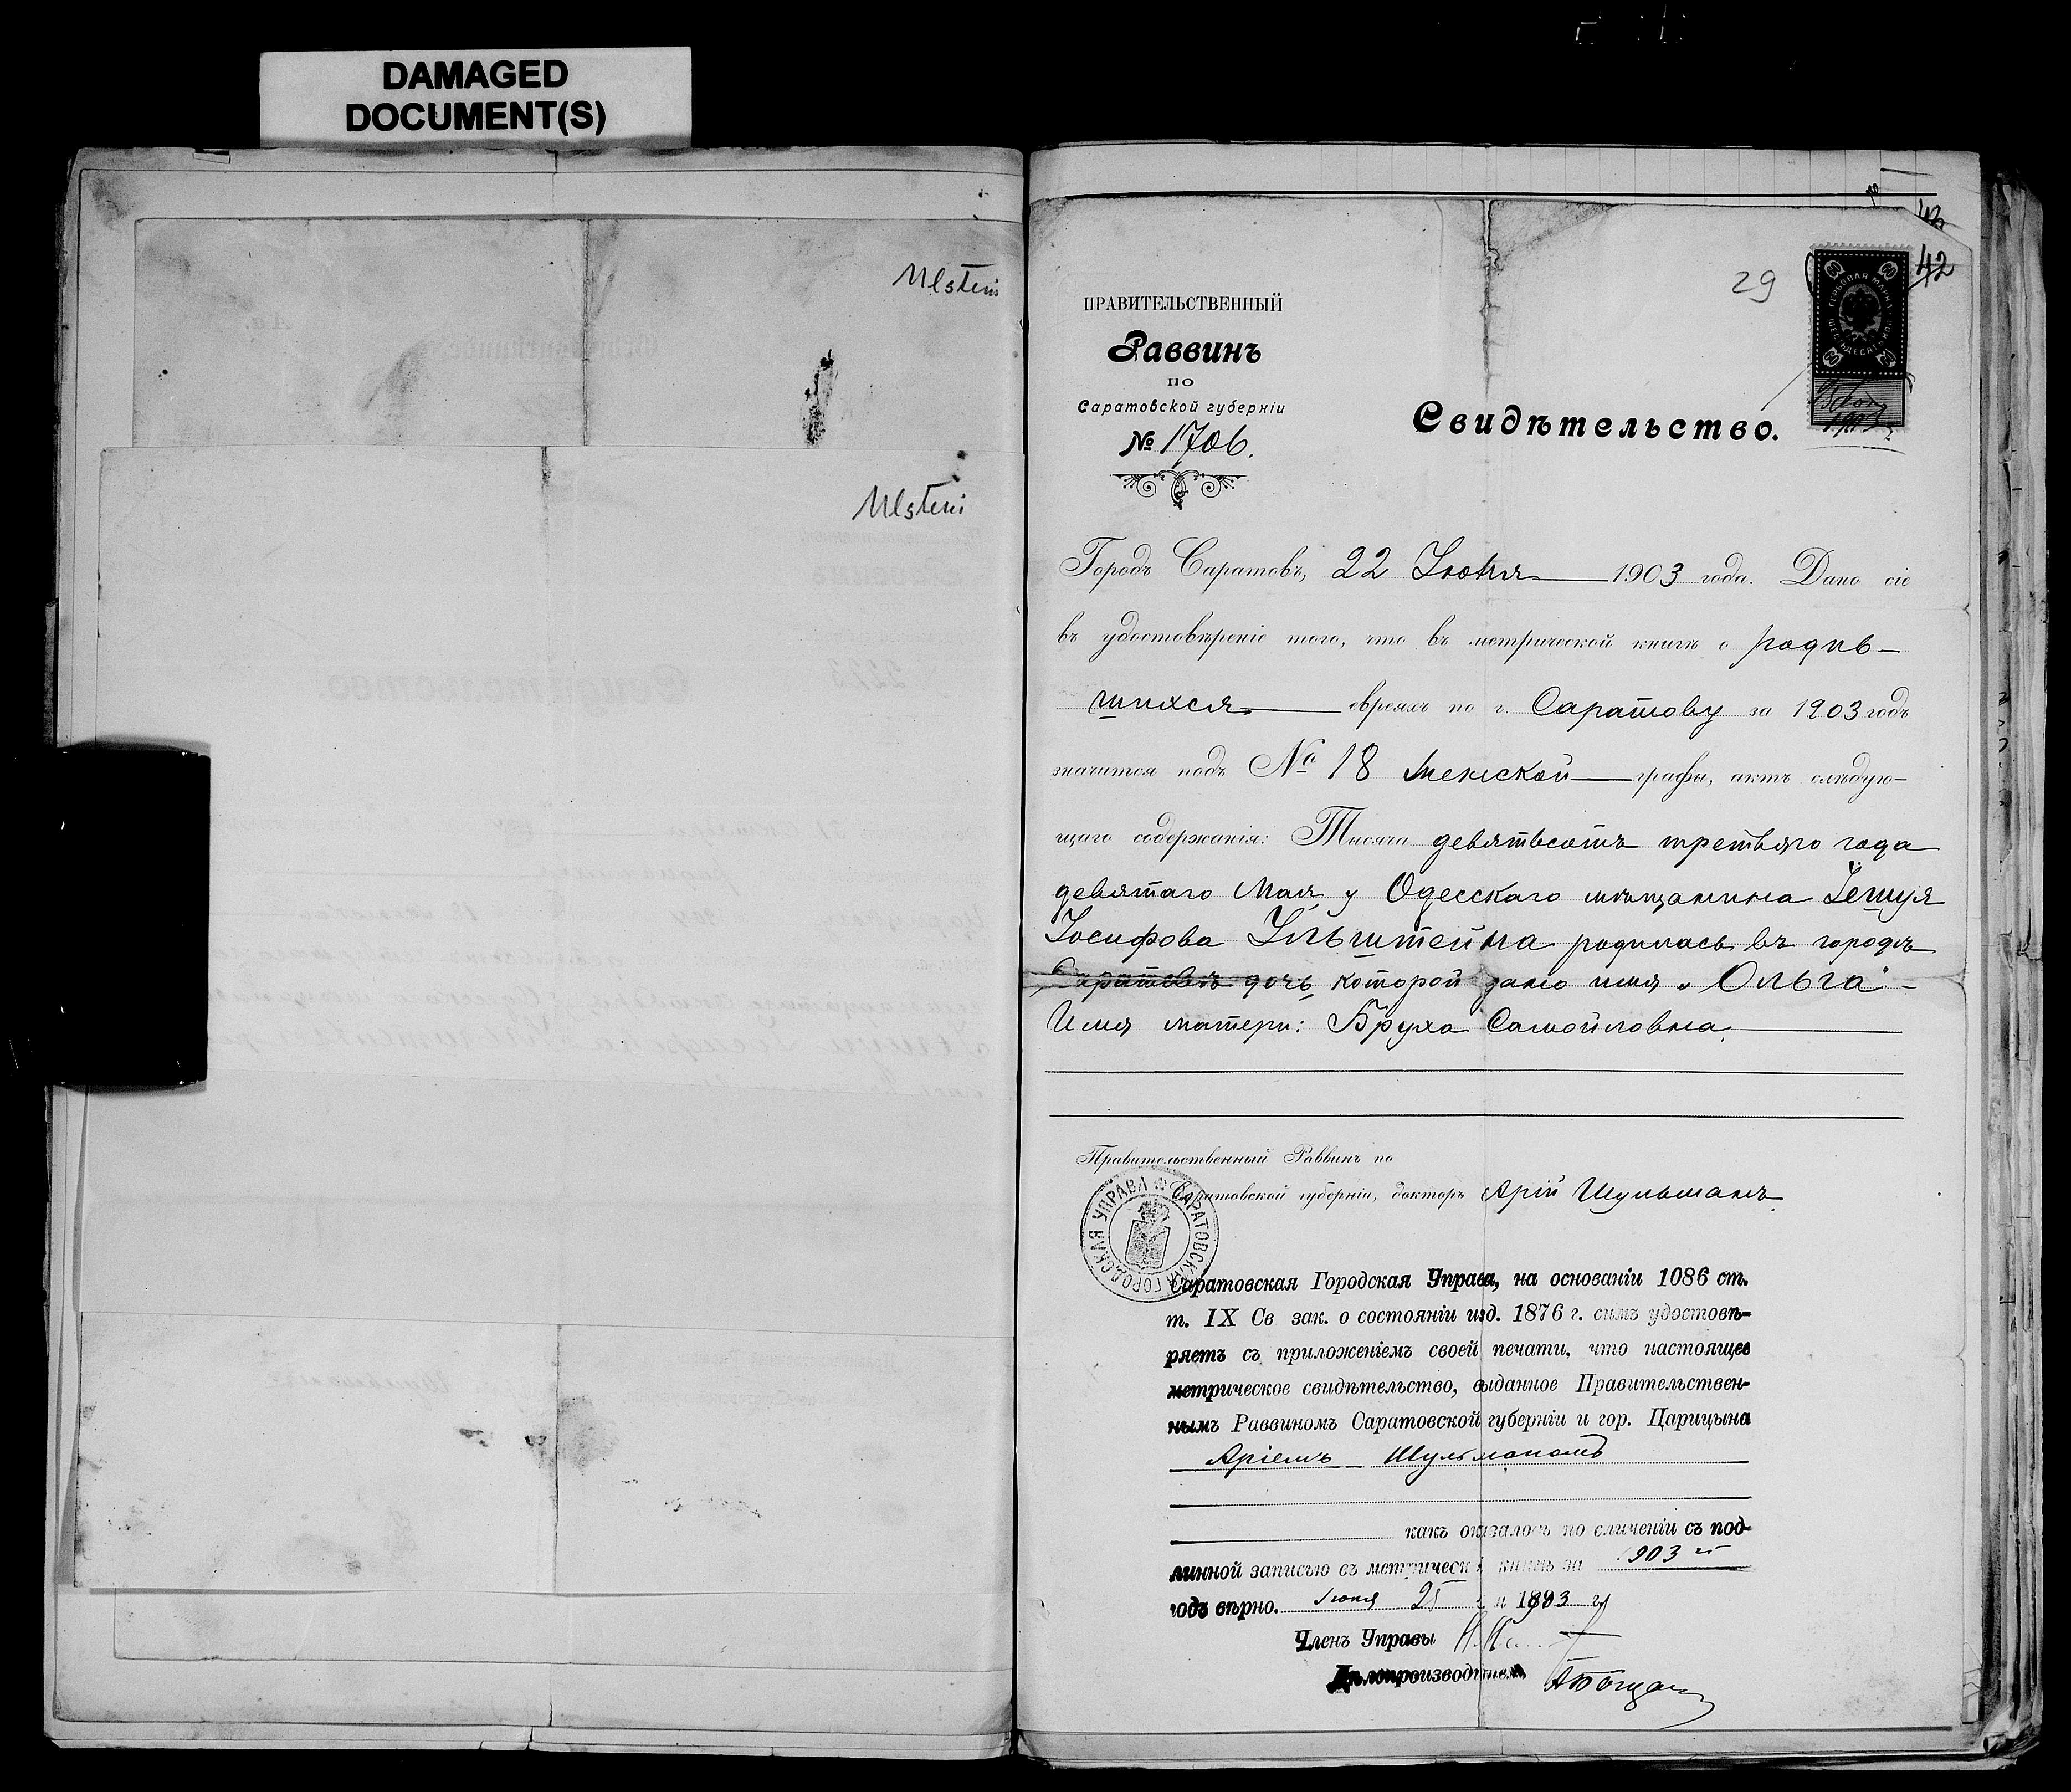 DAMAGED
DOCUMENT(S)
Ulstein
Ulstein
42
42
29
ПРАВИТЕЛЬСТВЕННЫЙ
Раввинъ
ПО
Саратовской губерніи
№ 1706.
ГЕРБОВАЯ МАРКА
ШЕСТЬДЕСЯТЪ КОП
60 60
60 60
1903
Свидѣтельство.
Городъ Саратовъ, 22 Іюня 1903 года. Дано сіе
въ удостовѣреніе того, что въ метрической книгѣ о родив-
шихся евреяхъ по г. Саратову за 1903 годъ
значится подъ № 18 женской графы, актъ слѣдую-
щаго содержанія: Тысяча девятьсотъ третьяго года
девятаго Мая у Одесскаго мѣщанина Іешуя
Іосифова Ульштейна родилась въ городѣ
Саратовѣ дочь, которой дано имя „Ольга"-
Имя матери: Бруха Самойловна.
Правительственный Раввинъ по
Саратовской губерніи, докторъ Арій Шульманъ
САРАТОВСКАЯ ГОРОДСКАЯ УПРАВА
Саратовская Городская Управа, на основаніи 1086 ст.
т. IX Св зак. о состояніи изд. 1876 г. симъ удостовѣ-
ряетъ съ приложеніемъ своей печати, что настоящее
метрическое свидѣтельство, выданное Правительствен-
нымъ Раввиномъ Саратовской губерніи и гор. Царицына
Аріемъ Шульманомъ
какъ оказалось по сличеніи съ под-
линной записью съ метрической книгѣ за 1903 й
годъ вѣрно. Іюня 25 дня 1893 г.
Членъ Управы
Дѣлопроизводитель